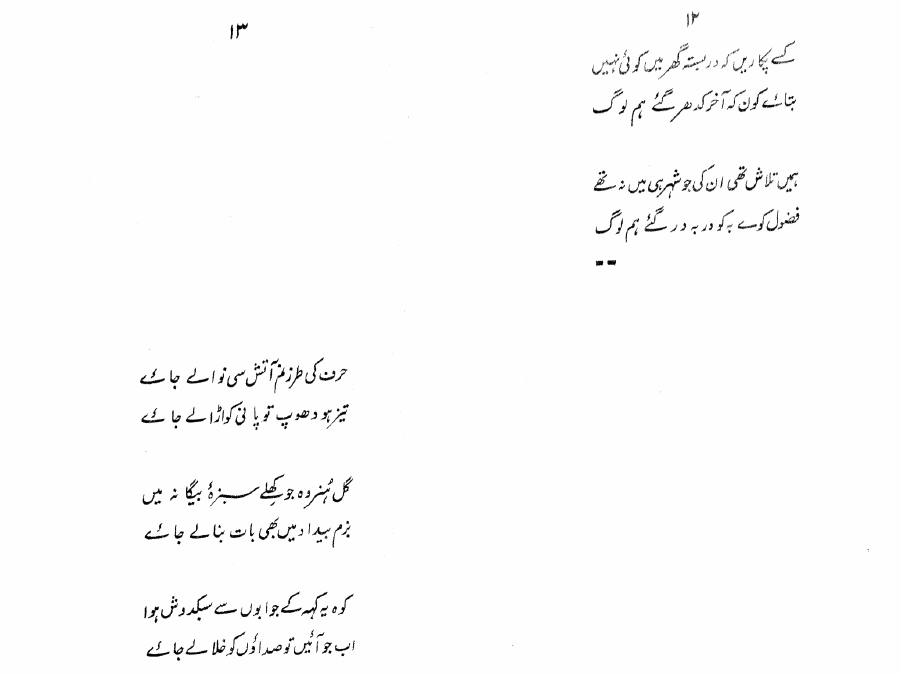 ۱۲
کسے پکاریں کہ در بستہ گھر میں کوئی نہیں
بتائے کون کہ آخر کدھر گئے ہم لوگ
ہمیں تلاش تھی ان کی جو شہر ہی میں نہ تھے
فضول کوے بہ کو در بہ در گئے ہم لوگ
۱۳
حرف کی طرز آتش سی نوا لے جائے
تیز ہو دھوپ تو پانی کو اڑا لے جائے
گل ہنر وہ جو کھلے سبزۂ بیگانہ میں
بزم بیداد میں بھی بات بنا لے جائے
کوہ یہ کہہ کے جوابوں سے سبکدوش ہوا
اب جو آئیں تو صداؤں کو خلا لے جائے